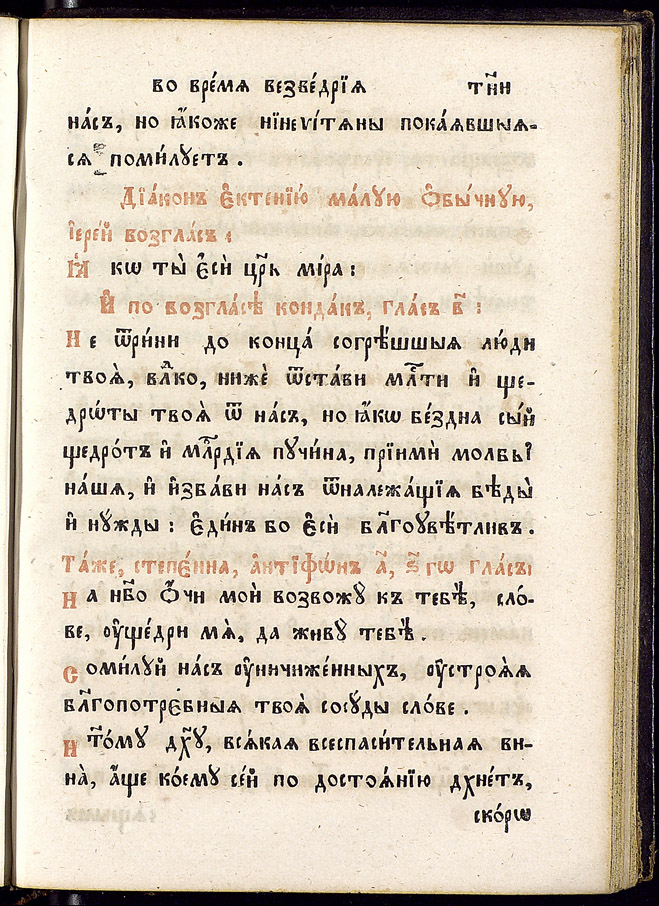 во вре́мѧ безве́дрїѧ т҃ни
на́съ, но ꙗ҆́коже нїнеѵі́тѧны пока́ѧвшыѧ-
сѧ поми́лꙋетъ.
Дїа́конъ є҆ктенїю̀ ма́лꙋю ѻ҆бы́чнꙋю,
і҆ере́й возгла́съ:
Ꙗ҆́кѡ ты̀ є҆сѝ цр҃ь ми́ра:
И҆ по во́згласѣ конда́къ, гла́съ в҃:
Не ѿри́ни до конца̀ согрѣ́шшыѧ лю́ди
твоѧ̑, влⷣко, нижѐ ѿста́ви мл҃сти и҆ ще-
дрѡ́ты твоѧ̑ ѿ на́съ, но ꙗ҆́кѡ бе́здна сы́й
щедро́тъ и҆ млⷭ҇рдїѧ пꙋчи́на, прїимѝ мольбы̑
на́шѧ, и҆ и҆зба́ви на́съ ѿналежа́щїѧ бѣды̀
и҆ нꙋ́жды: є҆ди́нъ бо є҆сѝ бл҃гоꙋвѣ́тливъ.
Та́же, степє́нна, а҆нтїфѡ́нъ а҃, з҃гѡ гла́са:
На нб҃о ѻ҆́чи моѝ возвожꙋ̀ къ тебѣ̀, сло́-
ве, ᲂу҆ще́дри мѧ̀, да живꙋ̀ тебѣ̀.
Поми́лꙋй на́съ ᲂу҆ничиже́нныхъ, ᲂу҆стро́ѧѧ
бл҃гопотрє́бныѧ твоѧ̑ сосꙋ́ды сло́ве.
Ст҃о́мꙋ дх҃ꙋ, всѧ́каѧ всеспаси́тельнаѧ ви-
на̀, а҆́ще ко́емꙋ се́й по достоѧ́нїю дхне́тъ,
ско́рѡ